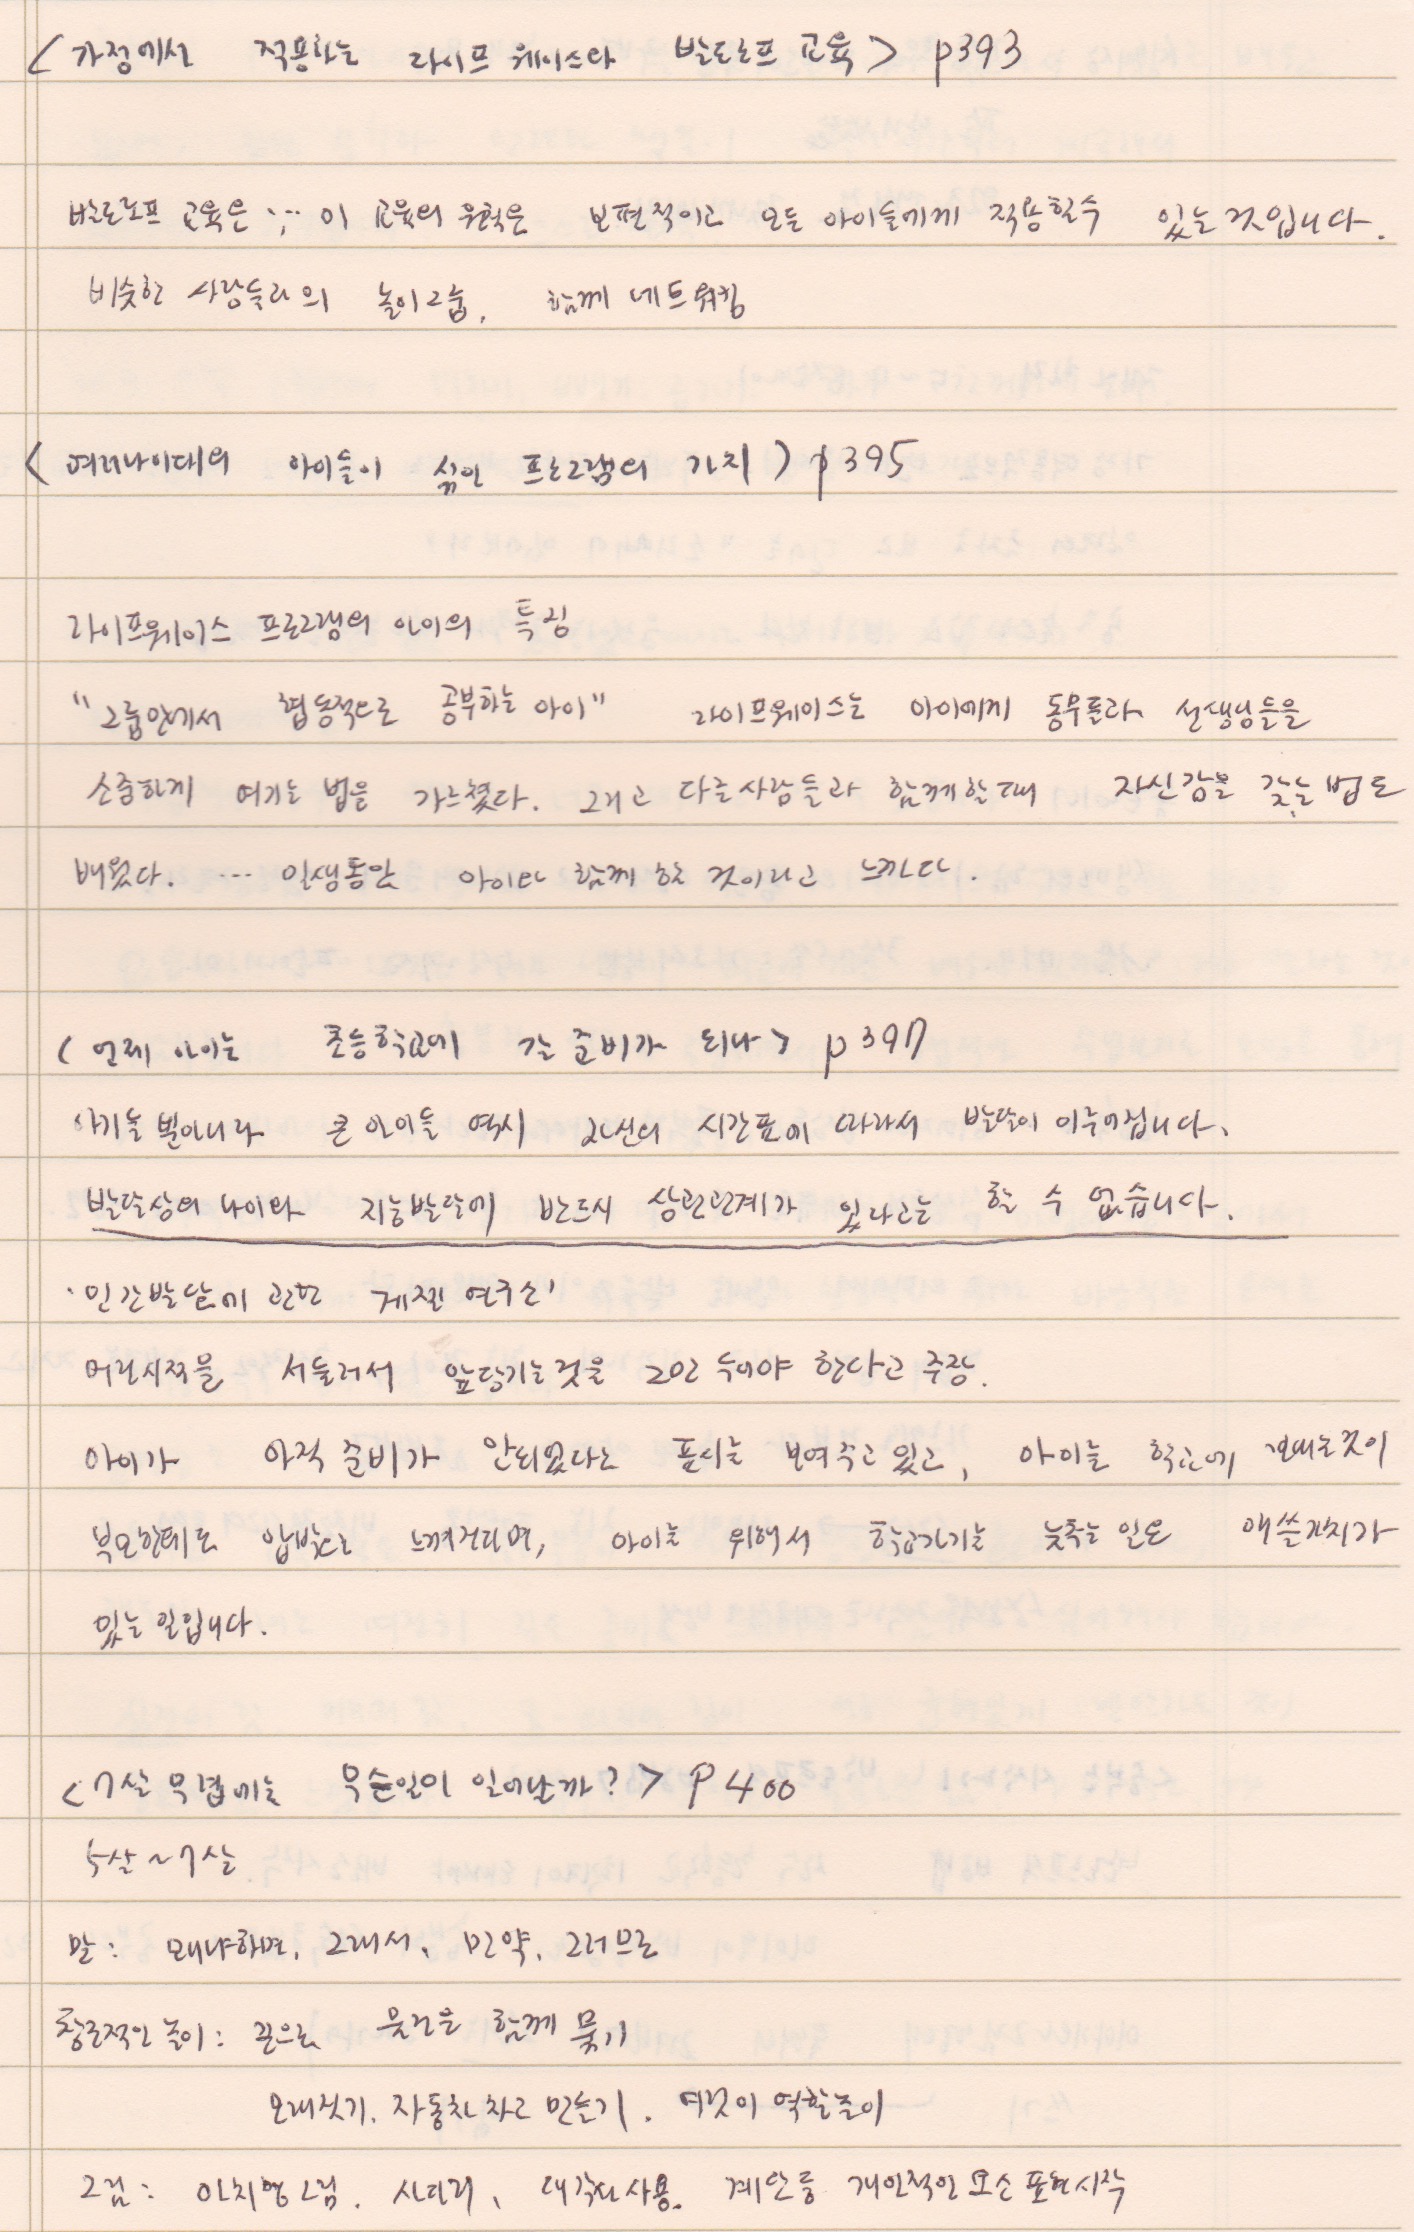 <가정에서 적용하는 라이프웨이스와 발도르프 교육> p393
발도르프 교육은 ; … 이 교육의 원칙은 보편적이고 모든 아이들에게 적용할수 있는 것입니다.
비슷한 사람들과의 놀이그룹, 함께 네트워킹
<여러나이대의 아이들이 섞인 프로그램의 가치> p395
라이프웨이스 프로그램의 아이의 특징
"그룹안에서 협동적으로 공부하는 아이" 라이프웨이스는 아이에게 동무들과 선생님들을
소중하게 여기는 법을 가르쳤다. 그리고 다른사람들과 함께할때 자신감을 갖는 법도
배웠다. … 일생동안 아이와 함께 할 것이라고 느낀다.
<언제 아이는 초등학교에 갈 준비가 되나> p397
아기들 뿐아니라 큰 아이들 역시 자신의 시간표에 따라서 발달이 이루어집니다.
발달상의 나이와 지능발달에 반드시 상관관계가 있다고는 할 수 없습니다.
'인간발달에 관한 게젤 연구소'
어린시절을 서둘러서 앞당기는것을 그만 두어야 한다고 주장.
아이가 아직 준비가 안되었다는 표시를 보여주고 있고, 아이를 학교에 보내는것이
부모한테도 압박으로 느껴진다면, 아이를 위해서 학교가기를 늦추는 일은 애쓸가치가
있는 일입니다.
<7살 무렵에는 무슨일이 일어날까?> p400
5살~7살
말: 왜냐하면, 그래서, 만약, 그러므로
창조적인 놀이: 끈으로 물건을 함께 묶기
모래짓기, 자동차 차고 만들기, 여럿이 역할놀이
그림: 아치형그림, 사다리, 대각선사용, 계단등 개인적인 요소 표현시작